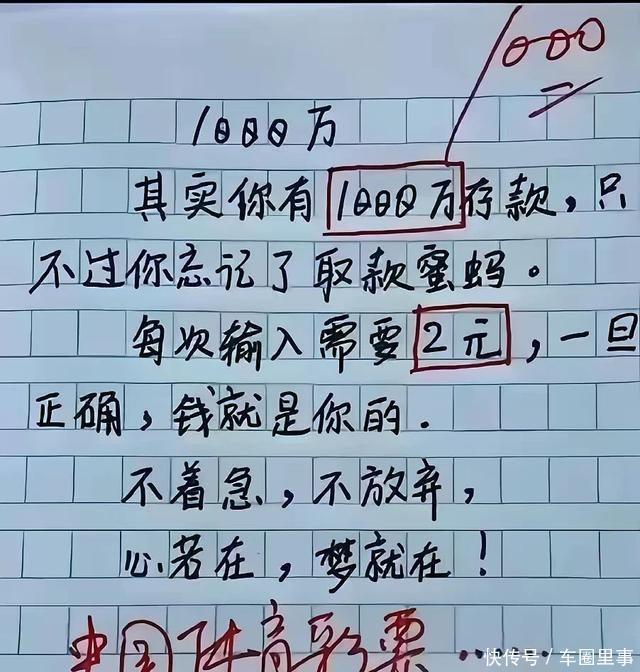 1000
1000万
其实你有1000万存款，只
不过你忘记了取款蜜蚂。
每次输入需要2元，一旦
正确，钱就是你的.
不着急，不放弃，
心若在，梦就在！
中国体育彩票……
快传号／车圈里事